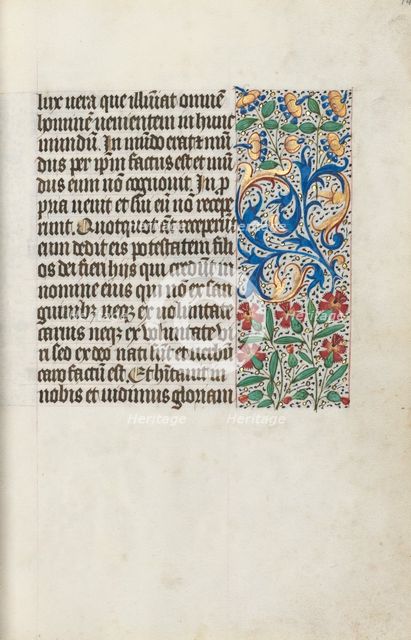 lux uera que illuiat omnē
hominē uenientem in hunc
mundū. In mūdo erat et mū
dus per ip̄m factus est et mū
dus eum nō cognouit. In p
pria uenit et sui eū nō recepe
runt. Quotquot aūt receperūt
eum dedit eis potestatem fili
os dei fieri hijs qui credūt in
nomine eius qui nō ex san
guinibꝫ neqꝫ ex uoluntate
carnis neqꝫ ex uolūtate vi
ri sed ex deo nati sūt et uerbū
caro factū est. Et hītauit in
nobis et uidimus gloriam
Heritage
Heritage